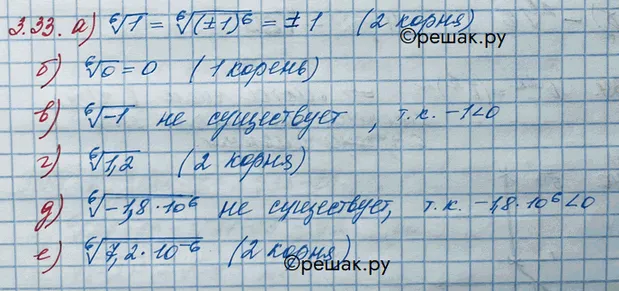 3.33. а) ⁶√1 = ⁶√(±1)⁶ = ±1 (2 корня)
©решак.ру
б) ⁶√0 = 0 (1 корень)
в) ⁶√-1 не существует, т.к. -1<0
г) ⁶√1,2 (2 корня)
д) ⁶√-1,8·10⁶ не существует, т.к. -1,8·10⁶<0
е) ⁶√7,2·10⁻⁶ (2 корня)
©решак.ру